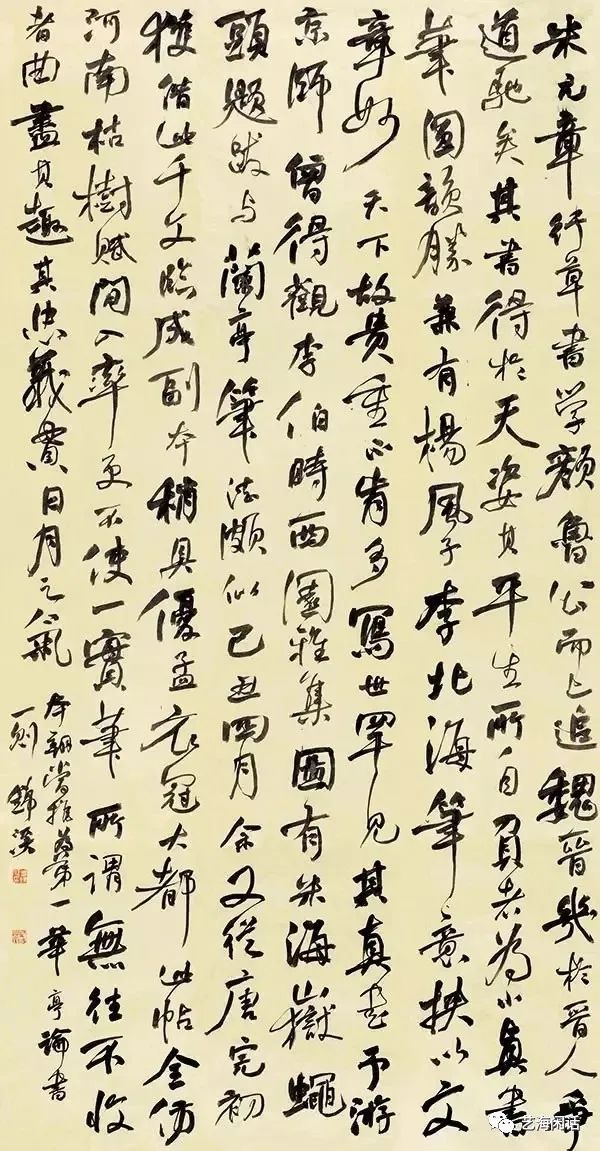 米元章行草書学顏魯公而上追魏晉幾於晉人爭
道馳矣其書得於天姿其平生所自負者為小真書
筆圓韻勝兼有楊風子李北海筆意挾以文
章妙天下故貴重不肯多寫世罕見其真書予游
京師曾得觀李伯時西園雅集圖有米海嶽蠅
頭題跋与蘭亭筆法頗似己丑四月余又從唐完初
獲借此千文臨成副本稍具優孟衣冠大都此帖全仿
河南枯樹賦間入率更不使一實筆所謂無往不收
者曲盡其趣其忠義貫日月之氣
本朝當推第一華亭論書
一則錦溪
艺海闲话